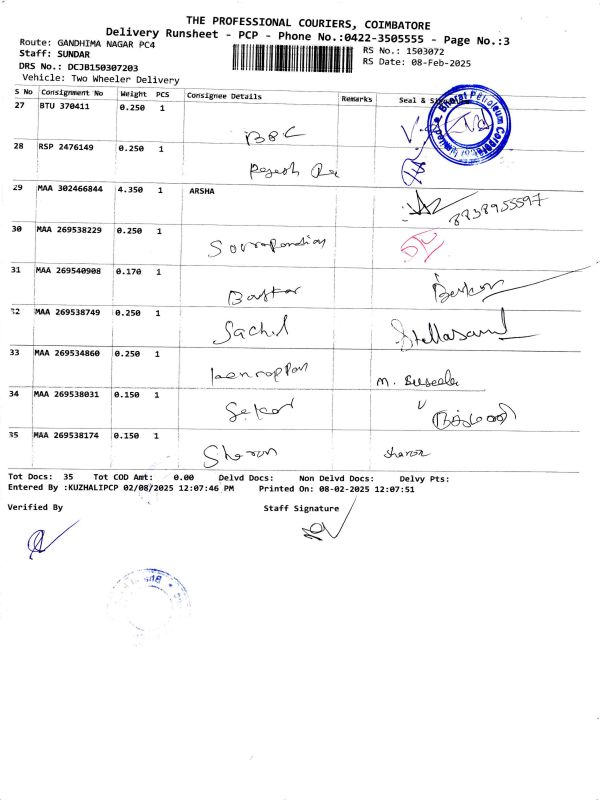 THE PROFESSIONAL COURIERS, COIMBATORE
Delivery Runsheet - PCP - Phone No.:0422-3505555 - Page No.:3
Route: GANDHIMA NAGAR PC4
Staff: SUNDAR
DRS No.: DCJB150307203
Vehicle: Two Wheeler Delivery
RS No.: 1503072
RS Date: 08-Feb-2025
S No Consignment No Weight PCS Consignee Details Remarks Seal &
27 BTU 370411 0.250 1
BBC
28 RSP 2476149 0.250 1
Rajesh
29 MAA 302466844 4.350 1 ARSHA
8938955597
30 MAA 269538229 0.250 1
31 MAA 269540908 0.170 1
Baskar Baskar
32 MAA 269538749 0.250 1
Sachil
33 MAA 269534860 0.250 1
M.
34 MAA 269538031 0.150 1
Sekar
35 MAA 269538174 0.150 1
Sharon Sharon
Bharat Petroleum
Tot Docs: 35 Tot COD Amt: 0.00 Delvd Docs: Non Delvd Docs: Delvy Pts:
Entered By :KUZHALIPCP 02/08/2025 12:07:46 PM Printed On: 08-02-2025 12:07:51
Verified By Staff Signature